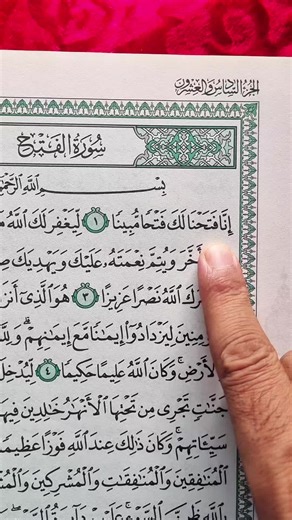 الجزء السادس والعشرون
سُورَةُ الفَتْحِ
بِسْمِ اللَّهِ الرَّحْمَٰنِ
إِنَّا فَتَحْنَا لَكَ فَتْحًا مُّبِينًا ١ لِّيَغْفِرَ لَكَ اللَّهُ
تَأَخَّرَ وَيُتِمَّ نِعْمَتَهُۥ عَلَيْكَ وَيَهْدِيَكَ
اللَّهُ نَصْرًا عَزِيزًا ٣ هُوَ الَّذِي أَنزَلَ
لِيَزْدَادُوٓا۟ إِيمَٰنًا مَّعَ إِيمَٰنِهِمْ ۗ وَلِلَّهِ
وَكَانَ اللَّهُ عَلِيمًا حَكِيمًا ٤ لِّيُدْخِلَ
جَنَّٰتٍ تَجْرِي مِن تَحْتِهَا الْأَنْهَٰرُ خَٰلِدِينَ فِيهَا
سَيِّـَٔاتِهِمْ ۚ وَكَانَ ذَٰلِكَ عِندَ اللَّهِ فَوْزًا عَظِيمًا
الْمُنَٰفِقِينَ وَالْمُنَٰفِقَٰتِ وَالْمُشْرِكِينَ وَالْمُشْرِكَٰتِ